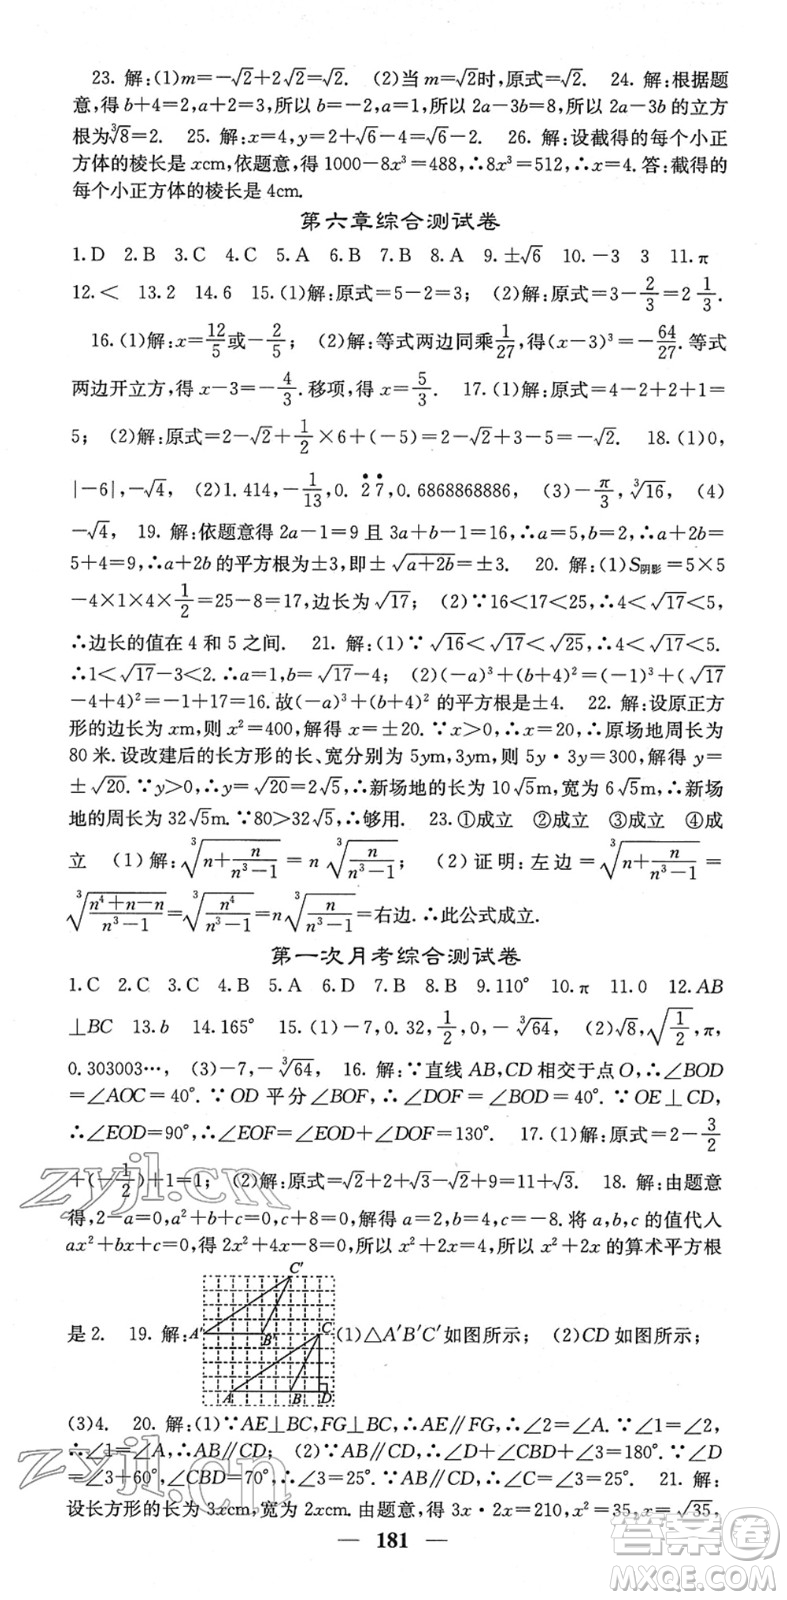 23. 解:(1)m=-√2+2√2=√2. (2)当m=√2时,原式=√2. 24. 解:根据题
意,得b+4=2,a+2=3,所以b=-2,a=1,所以2a-3b=8,所以2a-3b的立方
根为∛8=2. 25. 解:x=4,y=2+√6-4=√6-2. 26. 解:设截得的每个小正
方体的棱长是xcm,依题意,得1000-8x³=488,∴8x³=512,∴x=4.答:截得的
每个小正方体的棱长是4cm.
第六章综合测试卷
1.D 2.B 3.C 4.C 5.A 6.B 7.B 8.A 9.±√6 10.-3 3 11.π
12.< 13.2 14.6 15.(1)解:原式=5-2=3; (2)解:原式=3-2/3=2 1/3.
16.(1)解:x=12/5或-2/5; (2)解:等式两边同乘1/27,得(x-3)³=-64/27.等式
两边开立方,得x-3=-4/3.移项,得x=5/3. 17.(1)解:原式=4-2+2+1=
5; (2)解:原式=2-√2+1/2×6+(-5)=2-√2+3-5=-√2. 18.(1)0,
|-6|,-√4, (2)1.414,-1/13,0.2̇7̇,0.6868868886, (3)-π/3,∛16, (4)
-√4, 19. 解:依题意得2a-1=9且3a+b-1=16,∴a=5,b=2,∴a+2b=
5+4=9,∴a+2b的平方根为±3,即±√(a+2b)=±3. 20. 解:(1)S阴影=5×5
-4×1×4×1/2=25-8=17,边长为√17; (2)∵16<17<25,∴4<√17<5,
∴边长的值在4和5之间. 21. 解:(1)∵√16<√17<√25,∴4<√17<5,
∴1<√17-3<2.∴a=1,b=√17-4; (2)(-a)³+(b+4)²=(-1)³+(√17
-4+4)²=-1+17=16.故(-a)³+(b+4)²的平方根是±4. 22. 解:设原正方
形的边长为xm,则x²=400,解得x=±20.∵x>0,∴x=20,∴原场地周长为
80米.设改建后的长方形的长、宽分别为5ym,3ym,则5y·3y=300,解得y=
±√20.∵y>0,∴y=√20=2√5,∴新场地的长为10√5m,宽为6√5m,∴新场
地的周长为32√5m.∵80>32√5,∴够用. 23.①成立 ②成立 ③成立 ④成
立 (1)解:∛(n+n/(n³-1))=n∛(n/(n³-1)); (2)证明:左边=∛(n+n/(n³-1))=
∛((n⁴+n-n)/(n³-1))=∛(n⁴/(n³-1))=n∛(n/(n³-1))=右边.∴此公式成立.
第一次月考综合测试卷
1.C 2.C 3.C 4.B 5.A 6.D 7.B 8.B 9.110° 10.π 11.0 12.AB
⊥BC 13.b 14.165° 15.(1)-7,0.32,1/2,0,-∛64, (2)√8,√(1/2),π,
0.303003…, (3)-7,-∛64, 16. 解:∵直线AB,CD相交于点O,∴∠BOD
=∠AOC=40°.∵OD平分∠BOF,∴∠DOF=∠BOD=40°.∵OE⊥CD,
∴∠EOD=90°,∴∠EOF=∠EOD+∠DOF=130°. 17.(1)解:原式=2-3/2
+(-1/2)+1=1; (2)解:原式=√2+2+√3-√2+9=11+√3. 18. 解:由题意
得,2-a=0,a²+b+c=0,c+8=0,解得a=2,b=4,c=-8.将a,b,c的值代入
ax²+bx+c=0,得2x²+4x-8=0,所以x²+2x=4,所以x²+2x的算术平方根
是2. 19. 解: A' B' C' A B C D (1)△A'B'C'如图所示; (2)CD如图所示;
(3)4. 20. 解:(1)∵AE⊥BC,FG⊥BC,∴AE∥FG,∴∠2=∠A.∵∠1=∠2,
∴∠1=∠A,∴AB∥CD; (2)∵AB∥CD,∴∠D+∠CBD+∠3=180°.∵∠D
=∠3+60°,∠CBD=70°,∴∠3=25°.∵AB∥CD,∴∠C=∠3=25°. 21. 解:
设长方形的长为3xcm,宽为2xcm.由题意,得3x·2x=210,x²=35,x=√35,
— 181 —
zyjl.cn
zyjl.cn
答案圈
MXQE.COM